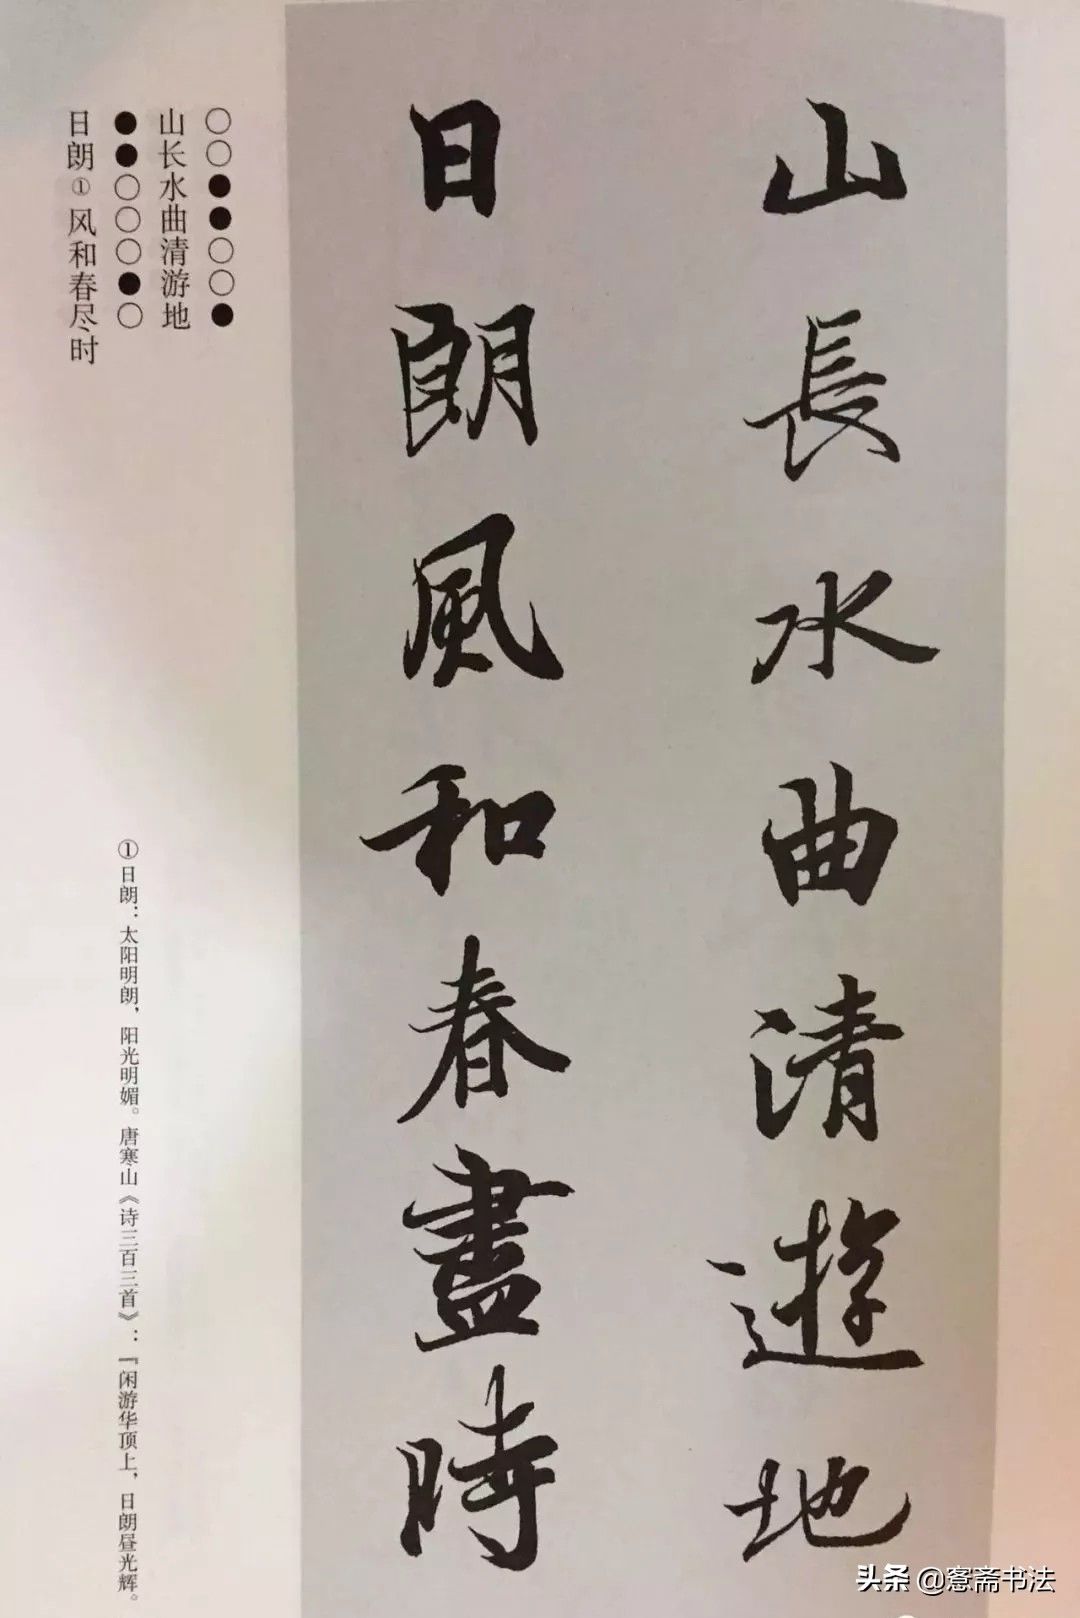 山長水曲清遊地
日朗風和春盡時
○○●●○○●
山长水曲清游地
●●○○○●○
日朗①风和春尽时
①日朗：太阳明朗，阳光明媚。唐寒山《诗三百三首》：“闲游华顶上，日朗昼光辉。
头条 @愙斋书法